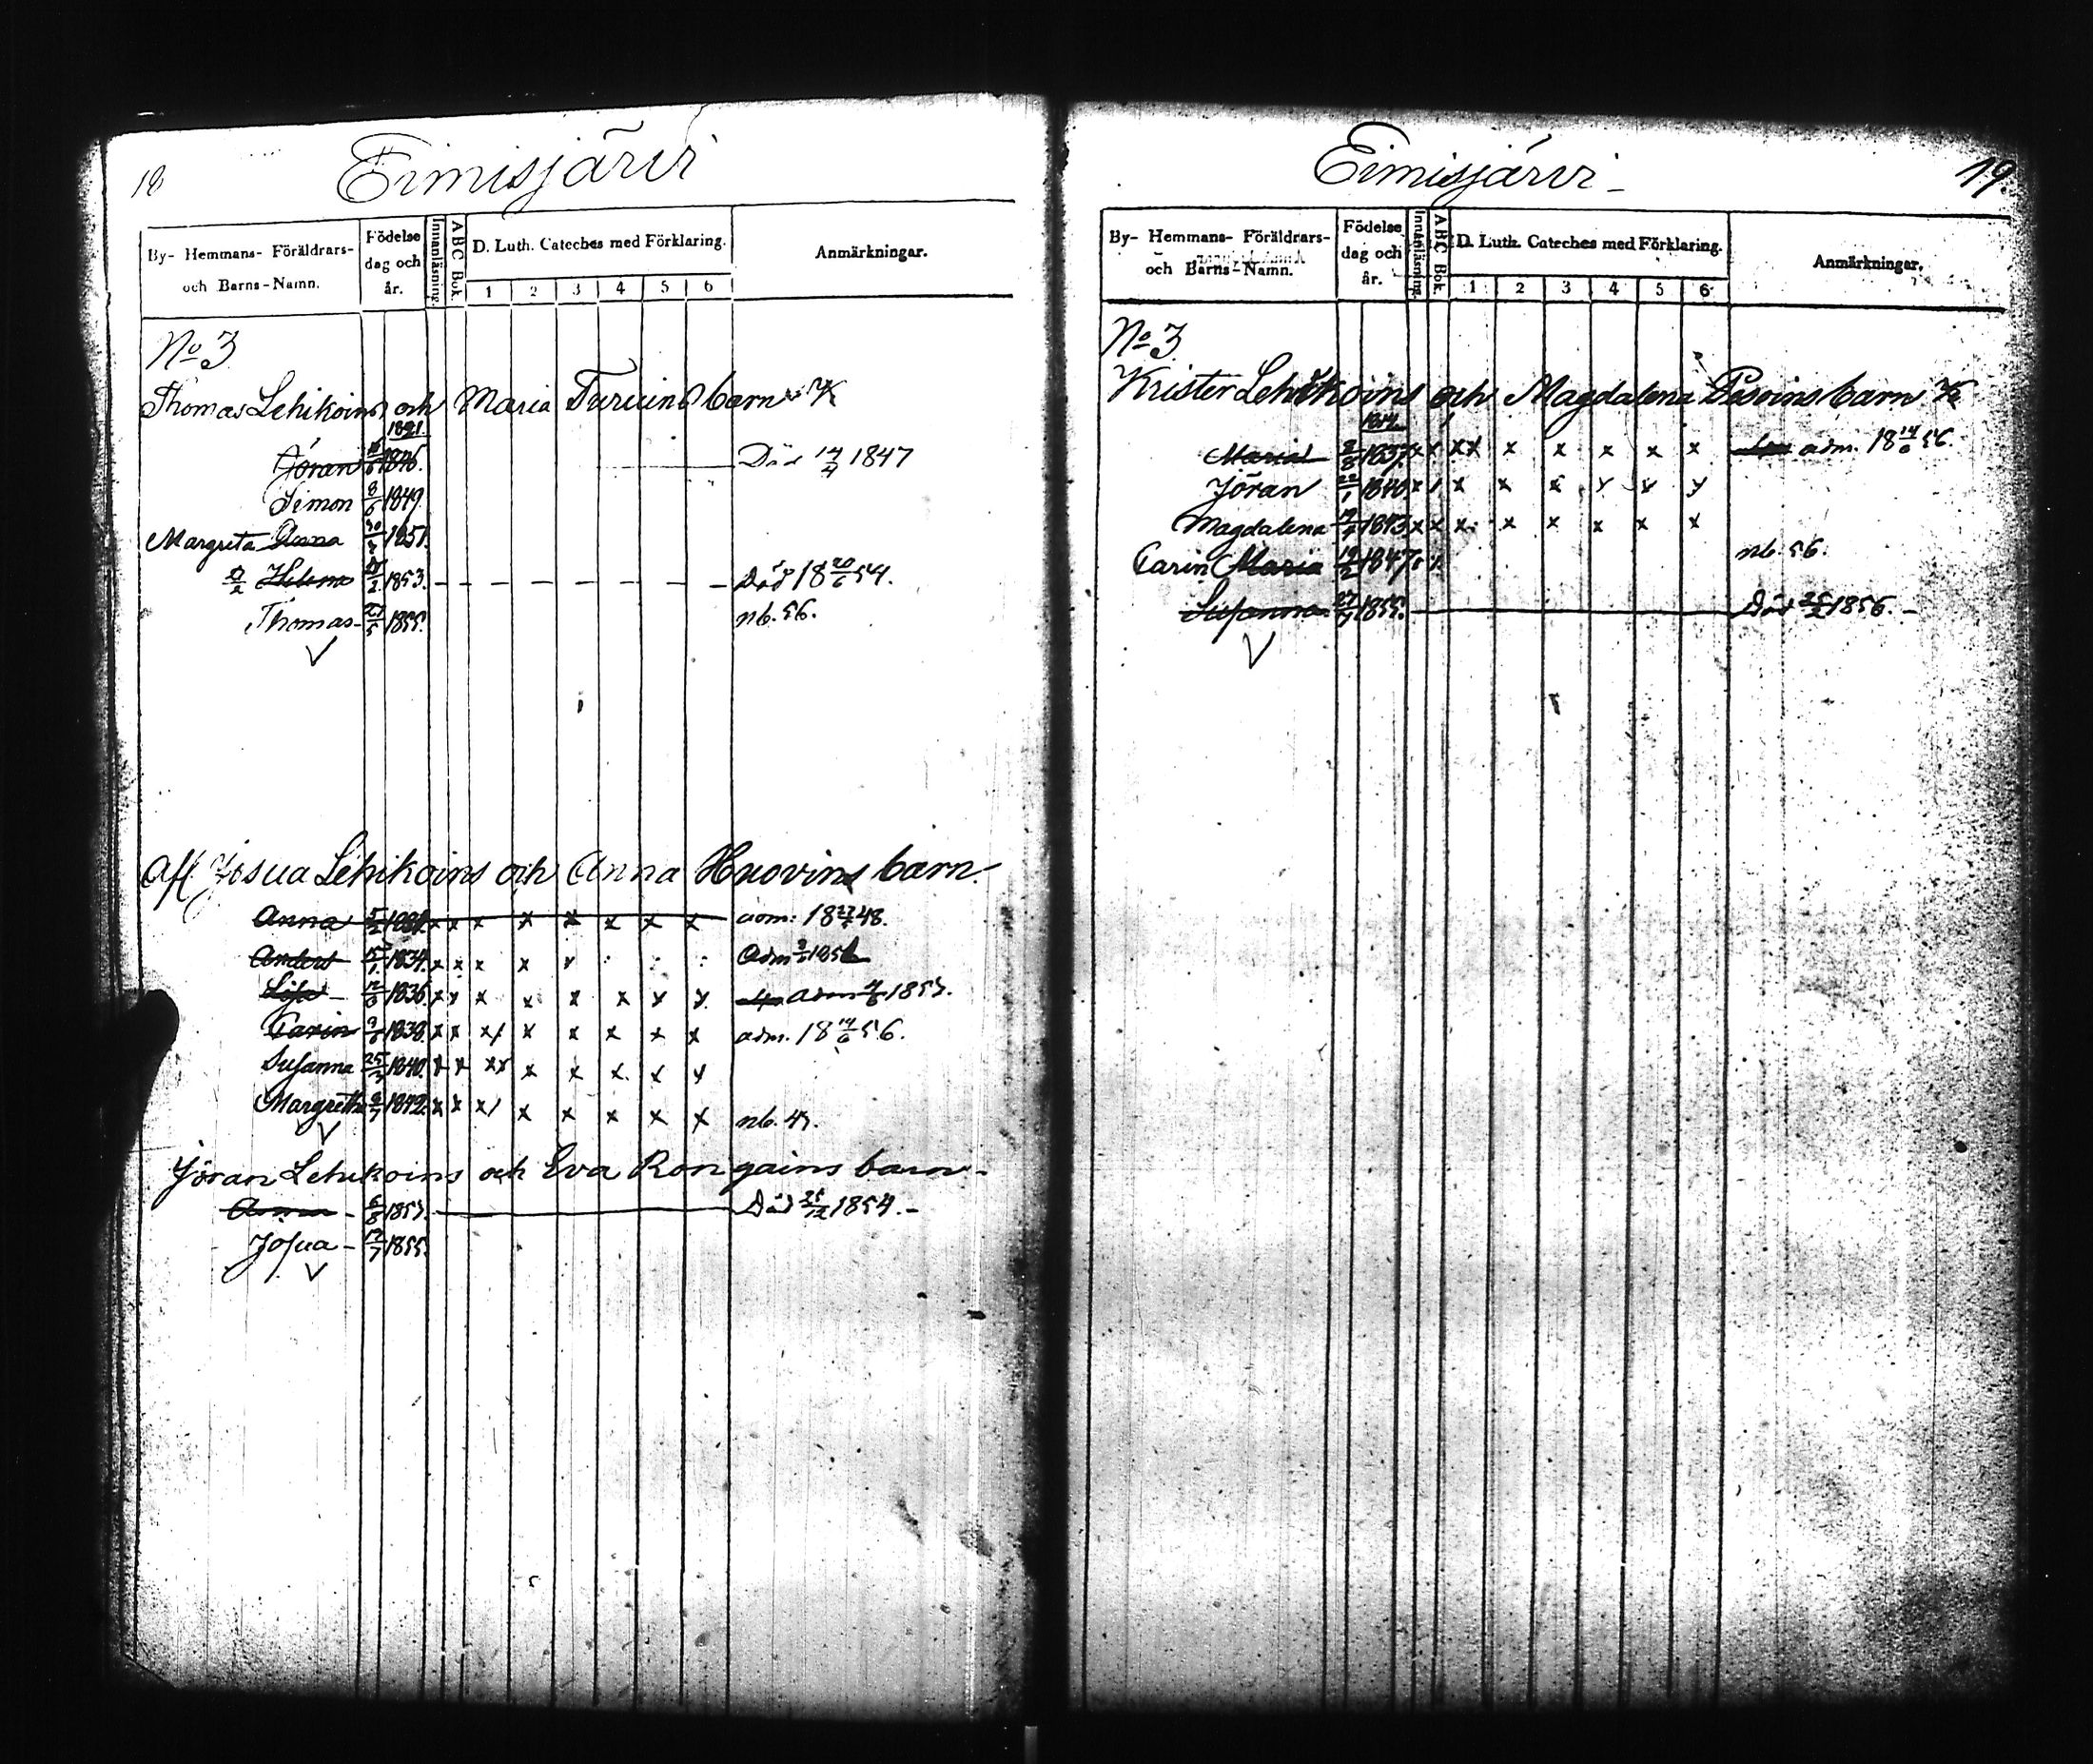 18
Eimisjärvi
By- Hemmans- Föräldrars- och Barns-Namn.
Födelse dag och år.
Innanläsning.
A B C Bok.
D. Luth. Cateches med Förklaring.
1 2 3 4 5 6
Anmärkningar.
No 3
Thomas Lehikoins och Maria barn
1821.
Jöran 1846. Död 1847
Simon 8/6 1849.
Margreta Anna 1851.
Helena 1853. — — — — — — — Död 18 20/6 54.
Thomas 1855. nb. 56.
Afl. Josua Lehikoins och Anna Huovins barn.
Anna x x x x x x x x adm. 18 48.
Anders 1834. x x x x adm
Lisa 1836 x x x x x x x x adm 1853.
Carin 1838. x x x/ x x x x x adm. 18 14/6 56.
Susanna 25/3 1840. x x xx x x x x x
Margretha 1842. x x x/ x x x x x nb.
Jöran Lehikoins och Eva Rongains barn
Anna 6/8 1853. Död 25/12 1854.
Josua 12/7 1855.
Eimisjärvi
19.
By- Hemmans- Föräldrars- och Barns-Namn.
Födelse dag och år.
Innanläsning.
A B C Bok.
D. Luth. Cateches med Förklaring.
1 2 3 4 5 6
Anmärkningar.
No 3
Krister Lehikoins och Magdalena barn
Maria 1837. x x xx x x x x x adm. 18 14/6 56.
Jöran 22/1 1840 x / x x x x x x
Magdalena 1843 x x x x x x x x
Carin Maria 1847 nb. 56.
Susanna 1855. Död 1856.